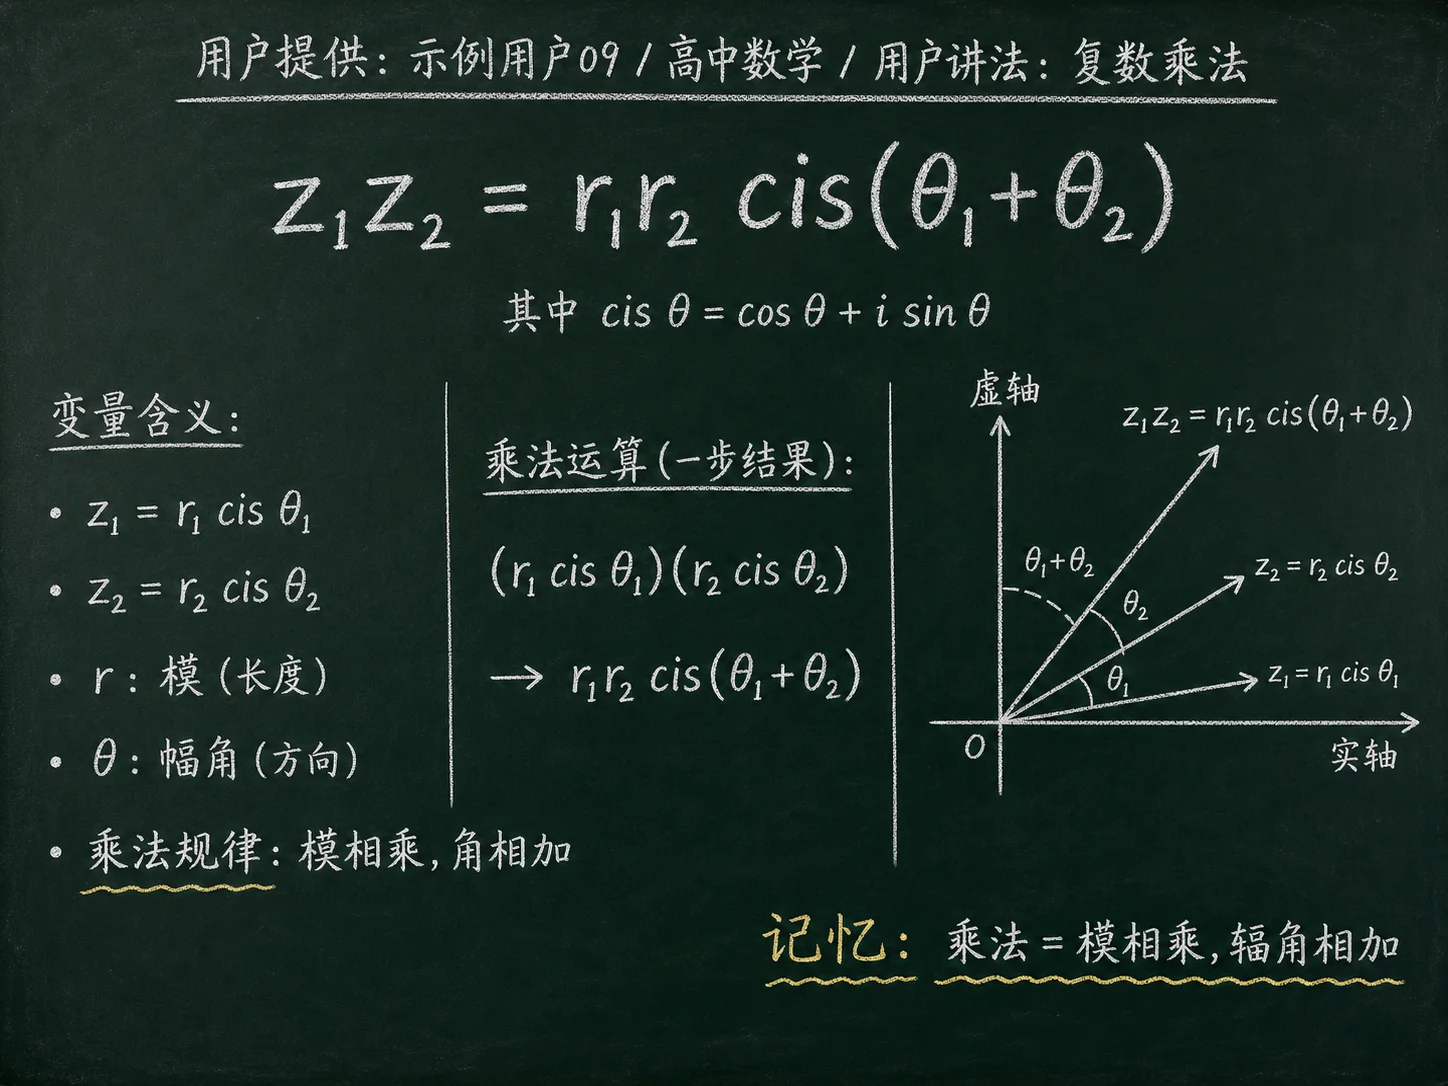 用户提供：示例用户09 / 高中数学 / 用户讲法：复数乘法
z₁z₂ = r₁r₂ cis(θ₁+θ₂)
其中 cis θ = cos θ + i sin θ
变量含义：
• z₁ = r₁ cis θ₁
• z₂ = r₂ cis θ₂
• r：模（长度）
• θ：幅角（方向）
• 乘法规律：模相乘，角相加
乘法运算（一步结果）：
(r₁ cis θ₁)(r₂ cis θ₂)
→ r₁r₂ cis(θ₁+θ₂)
虚轴
z₁z₂ = r₁r₂ cis(θ₁+θ₂)
θ₁+θ₂
θ₂
z₂ = r₂ cis θ₂
θ₁
z₁ = r₁ cis θ₁
O
实轴
记忆：乘法 = 模相乘，辐角相加